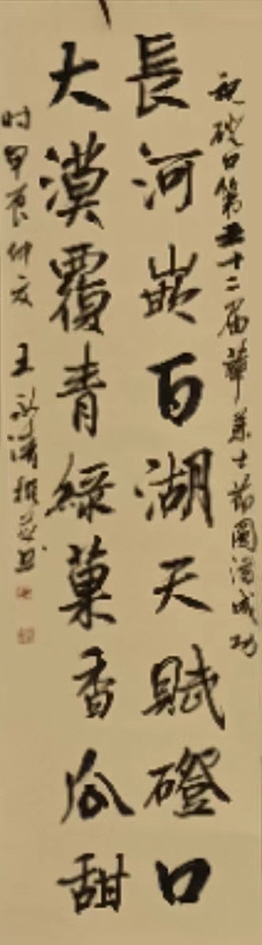 祝磴口第十二届華莱士节圆满成功
長河嵌百湖天賦磴口
大漠覆青綠菓香瓜甜
时甲辰仲夏 王永清撰並书